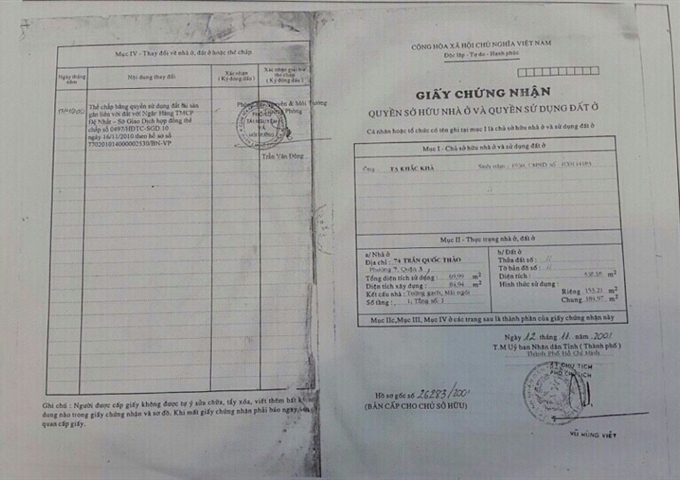 Mục IV - Thay đổi về nhà ở, đất ở hoặc thế chấp
Ngày tháng năm
Nội dung thay đổi
Xác nhận (Ký đóng dấu)
Xác nhận giải trừ thế chấp (Ký đóng dấu)
Thế chấp bằng quyền sử dụng đất & tài sản
gắn liền với đất với Ngân Hàng TMCP
Đệ Nhất - Sở Giao Dịch hợp đồng thế
chấp số 0497/HĐTC-SGD.10
ngày 16/11/2010 theo hồ sơ số
770201014000002530/BN-VP
Trần Văn Dũng
Ghi chú : Người được cấp giấy không được tự ý sửa chữa, tẩy xóa, viết thêm bất kỳ
dung nào trong giấy chứng nhận và sơ đồ. Khi mất giấy chứng nhận phải báo ngay
quan cấp giấy.
CỘNG HÒA XÃ HỘI CHỦ NGHĨA VIỆT NAM
Độc lập - Tự do - Hạnh phúc
GIẤY CHỨNG NHẬN
QUYỀN SỞ HỮU NHÀ Ở VÀ QUYỀN SỬ DỤNG ĐẤT Ở
Cá nhân hoặc tổ chức có tên ghi tại mục I là chủ sở hữu nhà ở và sử dụng đất ở
Mục I - Chủ sở hữu nhà ở và sử dụng đất ở
Ông TẠ KHẮC KHÀ
Mục II - Thực trạng nhà ở, đất ở
a/ Nhà ở
Địa chỉ : 74 TRẦN QUỐC THẢO
Phường 7, Quận 3
Tổng diện tích sử dụng : m2
Diện tích xây dựng : m2
Kết cấu nhà : Tường gạch, Mái ngói
Số tầng : 1, Tầng số: 1
b/ Đất ở
Thửa đất số :
Tờ bản đồ số :
Diện tích : m2
Hình thức sử dụng :
Riêng m2
Chung m2
Mục IIc, Mục III, Mục IV ở các trang sau là thành phần của giấy chứng nhận này
Ngày 12 tháng 11 năm 2001
T.M Uỷ ban Nhân dân Tỉnh ( Thành phố )
Thành Phố Hồ Chí Minh
PHÓ CHỦ TỊCH
Hồ sơ gốc số 26283/2001
(BẢN CẤP CHO CHỦ SỞ HỮU)
VŨ HÙNG VIỆT